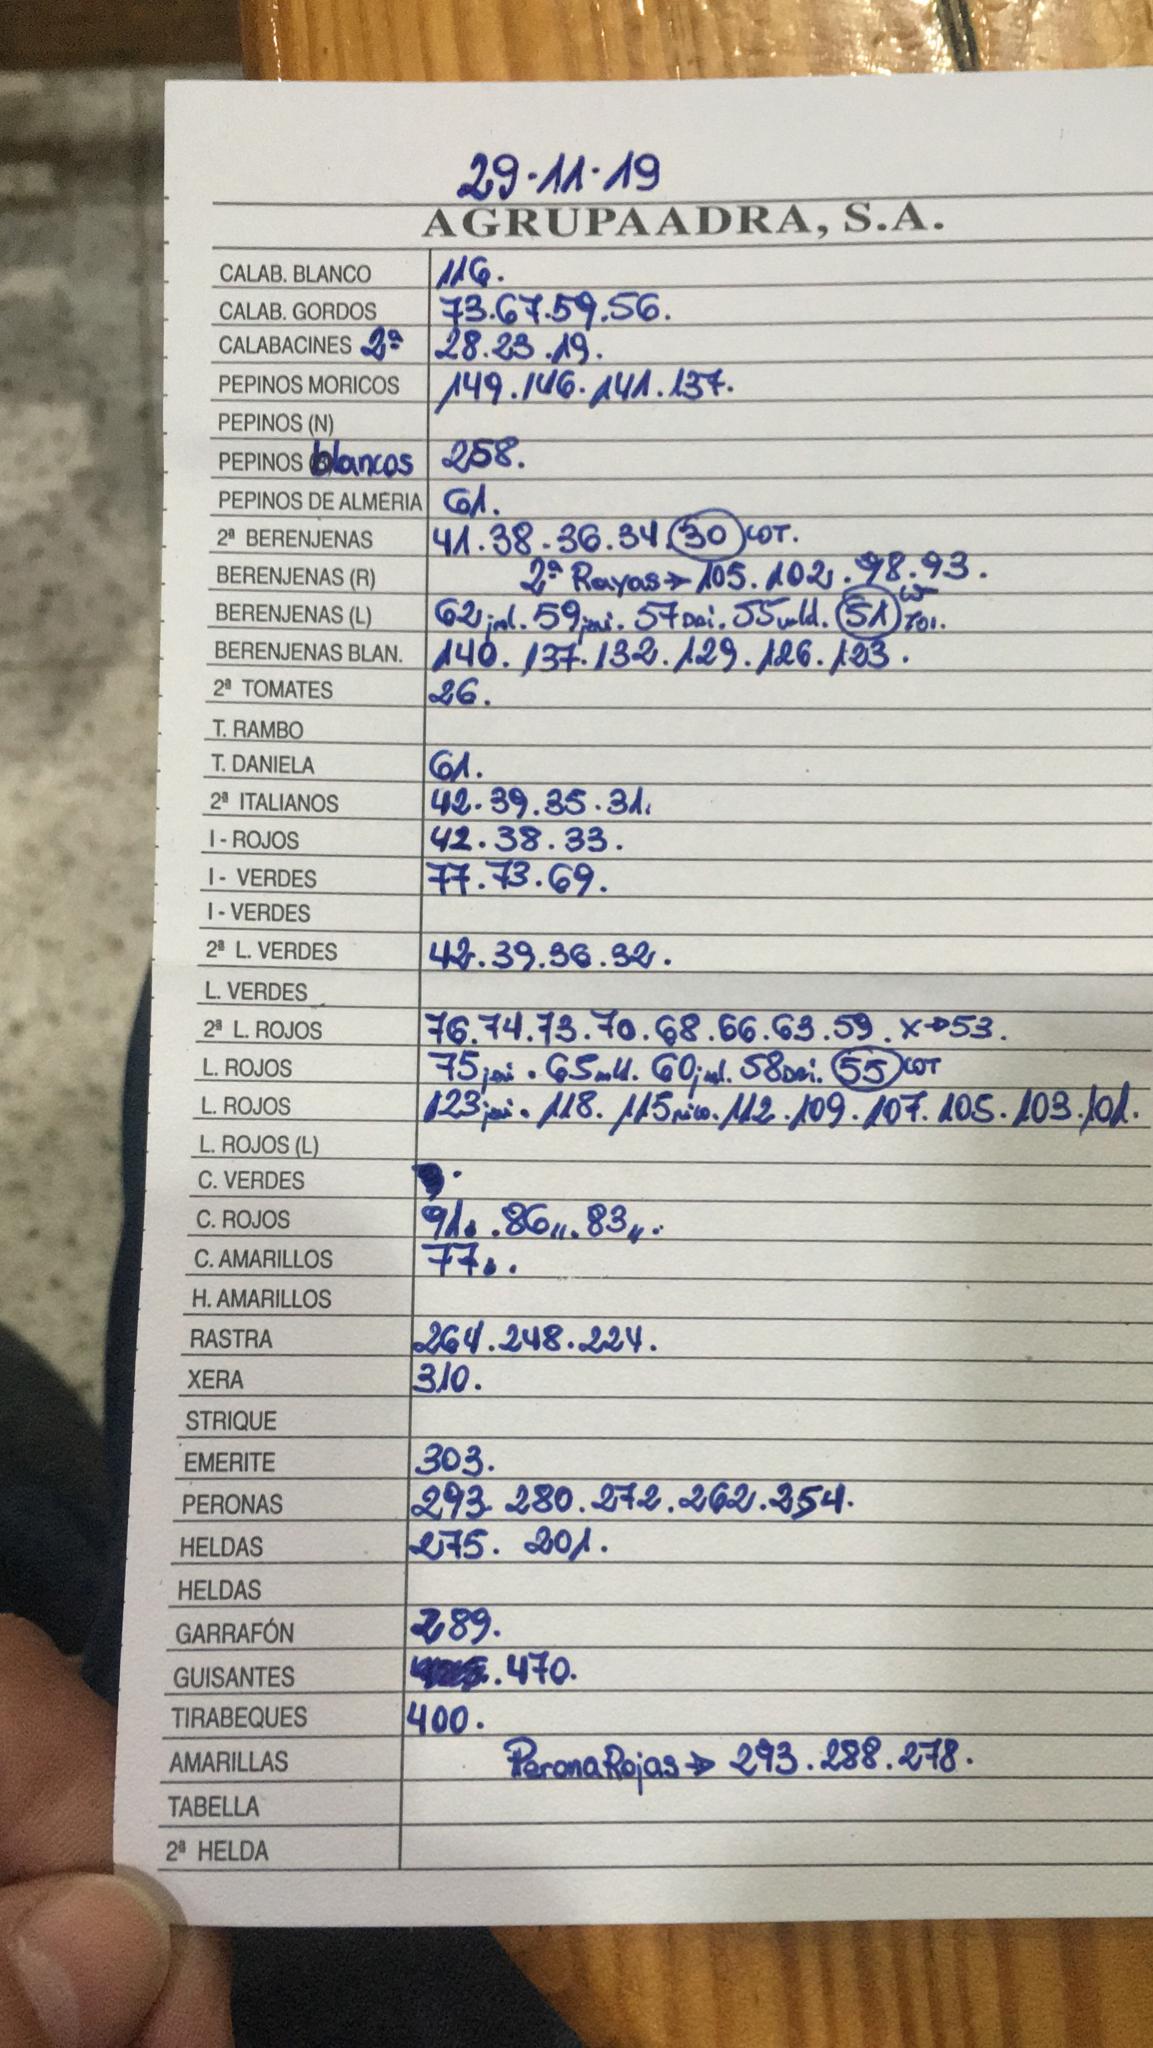 29-11-19
AGRUPAADRA, S.A.
CALAB. BLANCO 116.
CALAB. GORDOS 73.67.59.56.
CALABACINES 2ª 28.23.19.
PEPINOS MORICOS 149.146.141.137.
PEPINOS (N)
PEPINOS blancos 258.
PEPINOS DE ALMERIA 61.
2ª BERENJENAS 41.38.36.34.30 COT.
BERENJENAS (R) 2ª Rayas→105.102.98.93.
BERENJENAS (L) 62 59 57 55 51
BERENJENAS BLAN. 140.137.132.129.126.123.
2ª TOMATES 26.
T. RAMBO
T. DANIELA 61.
2ª ITALIANOS 42.39.35.31.
I - ROJOS 42.38.33.
I - VERDES 77.73.69.
I - VERDES
2ª L. VERDES 42.39.36.32.
L. VERDES
2ª L. ROJOS 76.74.73.70.68.66.63.59. x→53.
L. ROJOS 75 65 60 58 55 COT
L. ROJOS 123 118. 115 112.109.107.105.103.101.
L. ROJOS (L)
C. VERDES
C. ROJOS 91. .86„.83„.
C. AMARILLOS 77..
H. AMARILLOS
RASTRA 264.248.224.
XERA 310.
STRIQUE
EMERITE 303.
PERONAS 293.280.272.262.254.
HELDAS 275. 201.
HELDAS
GARRAFÓN 289.
GUISANTES .470.
TIRABEQUES 400.
AMARILLAS Perona Rojas→293.288.278.
TABELLA
2ª HELDA